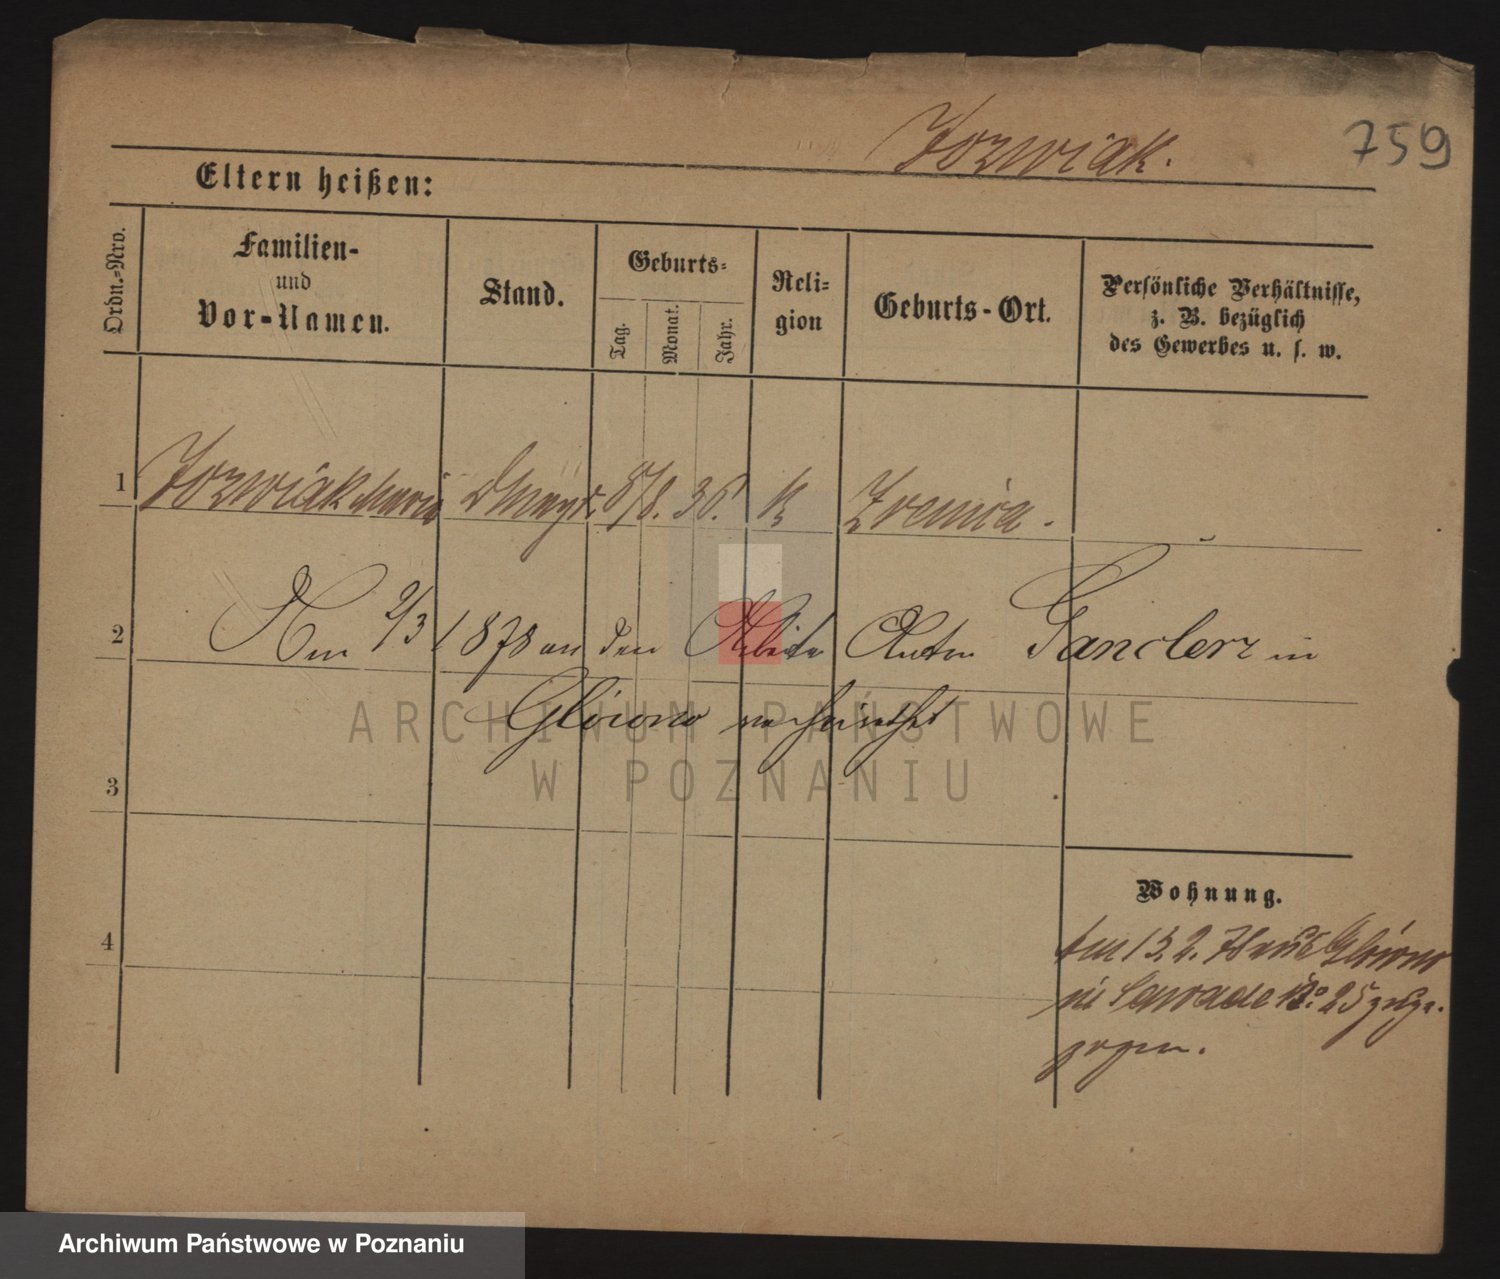 Jozwiak.
759
Eltern heißen:
Ordn.-Nro.
Familien-
und
Vor-Namen.
Stand.
Geburts-
Tag.
Monat.
Jahr.
Reli-
gion
Geburts-Ort.
Persönliche Verhältnisse,
z. B. bezüglich
des Gewerbes u. s. w.
1 Jozwiak Maria 8/8. 36. K Zrenica.
2 Am 2/3 1878 an den Arbeiter Anton Ganclerz in
Glowno verheirathet
3
4
Wohnung.
Am 13. 2. 78 aus Glowno
in No. 25 zuge-
zogen.
ARCHIWUM PAŃSTWOWE
W POZNANIU
Archiwum Państwowe w Poznaniu